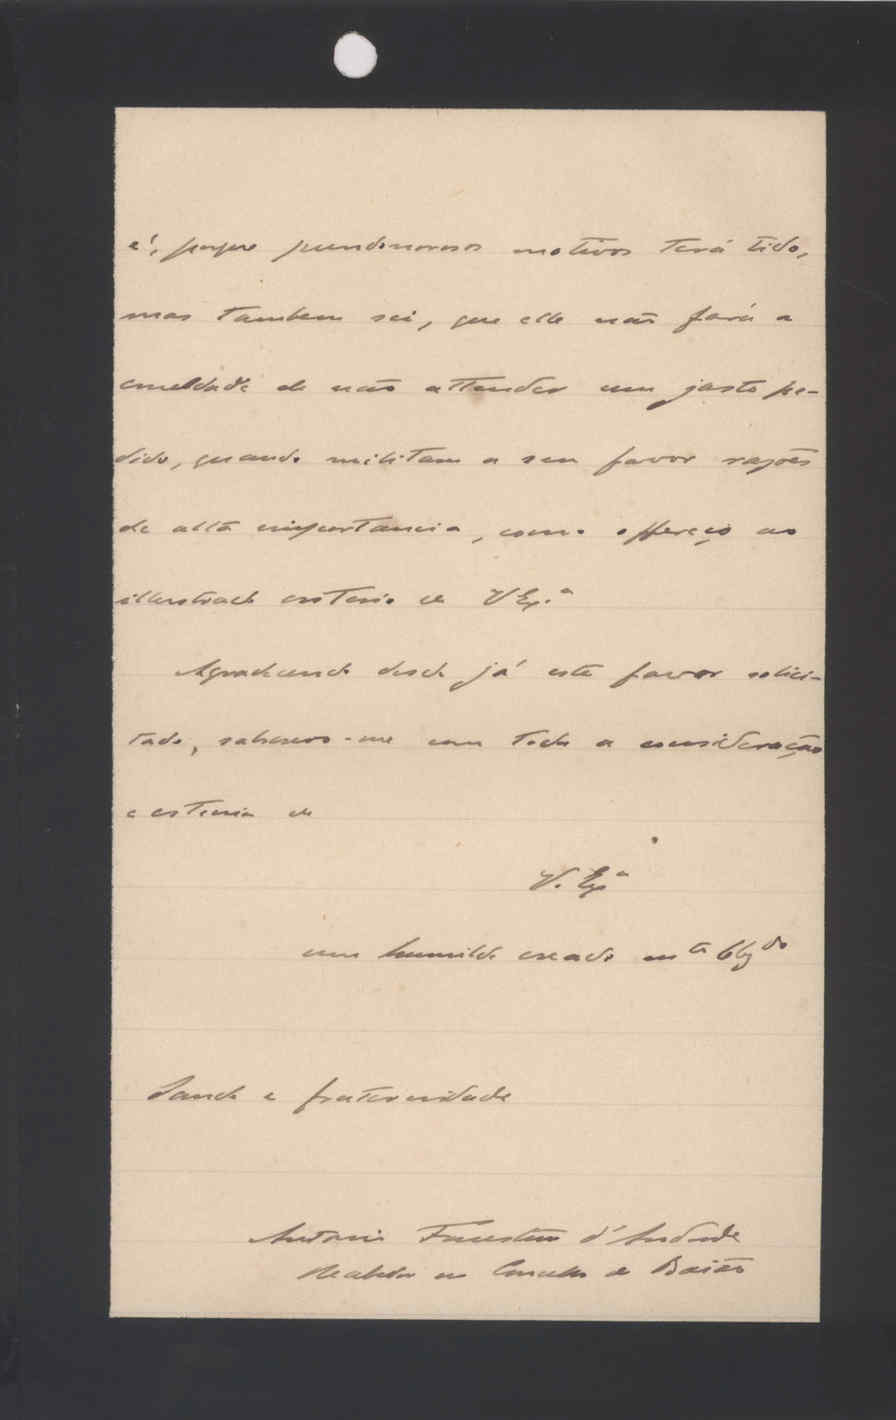 é, porque pundonorosos motivos terá tido,
mas tambem sei, que elle não fará a
crueldade de não attender um justo pe-
dido, quando militam a seu favor razões
de alta importancia, como offereço ao
illustrado criterio de V Ex.ª
Agradecendo desde já este favor solici-
tado, subscrevo-me com toda a consideração
e estima de
V. Exª
um humilde creado mtº Obgdo
Saude e fraternidade
Antonio Faustino d'Andrade
Recebedor no Concelho de Baião